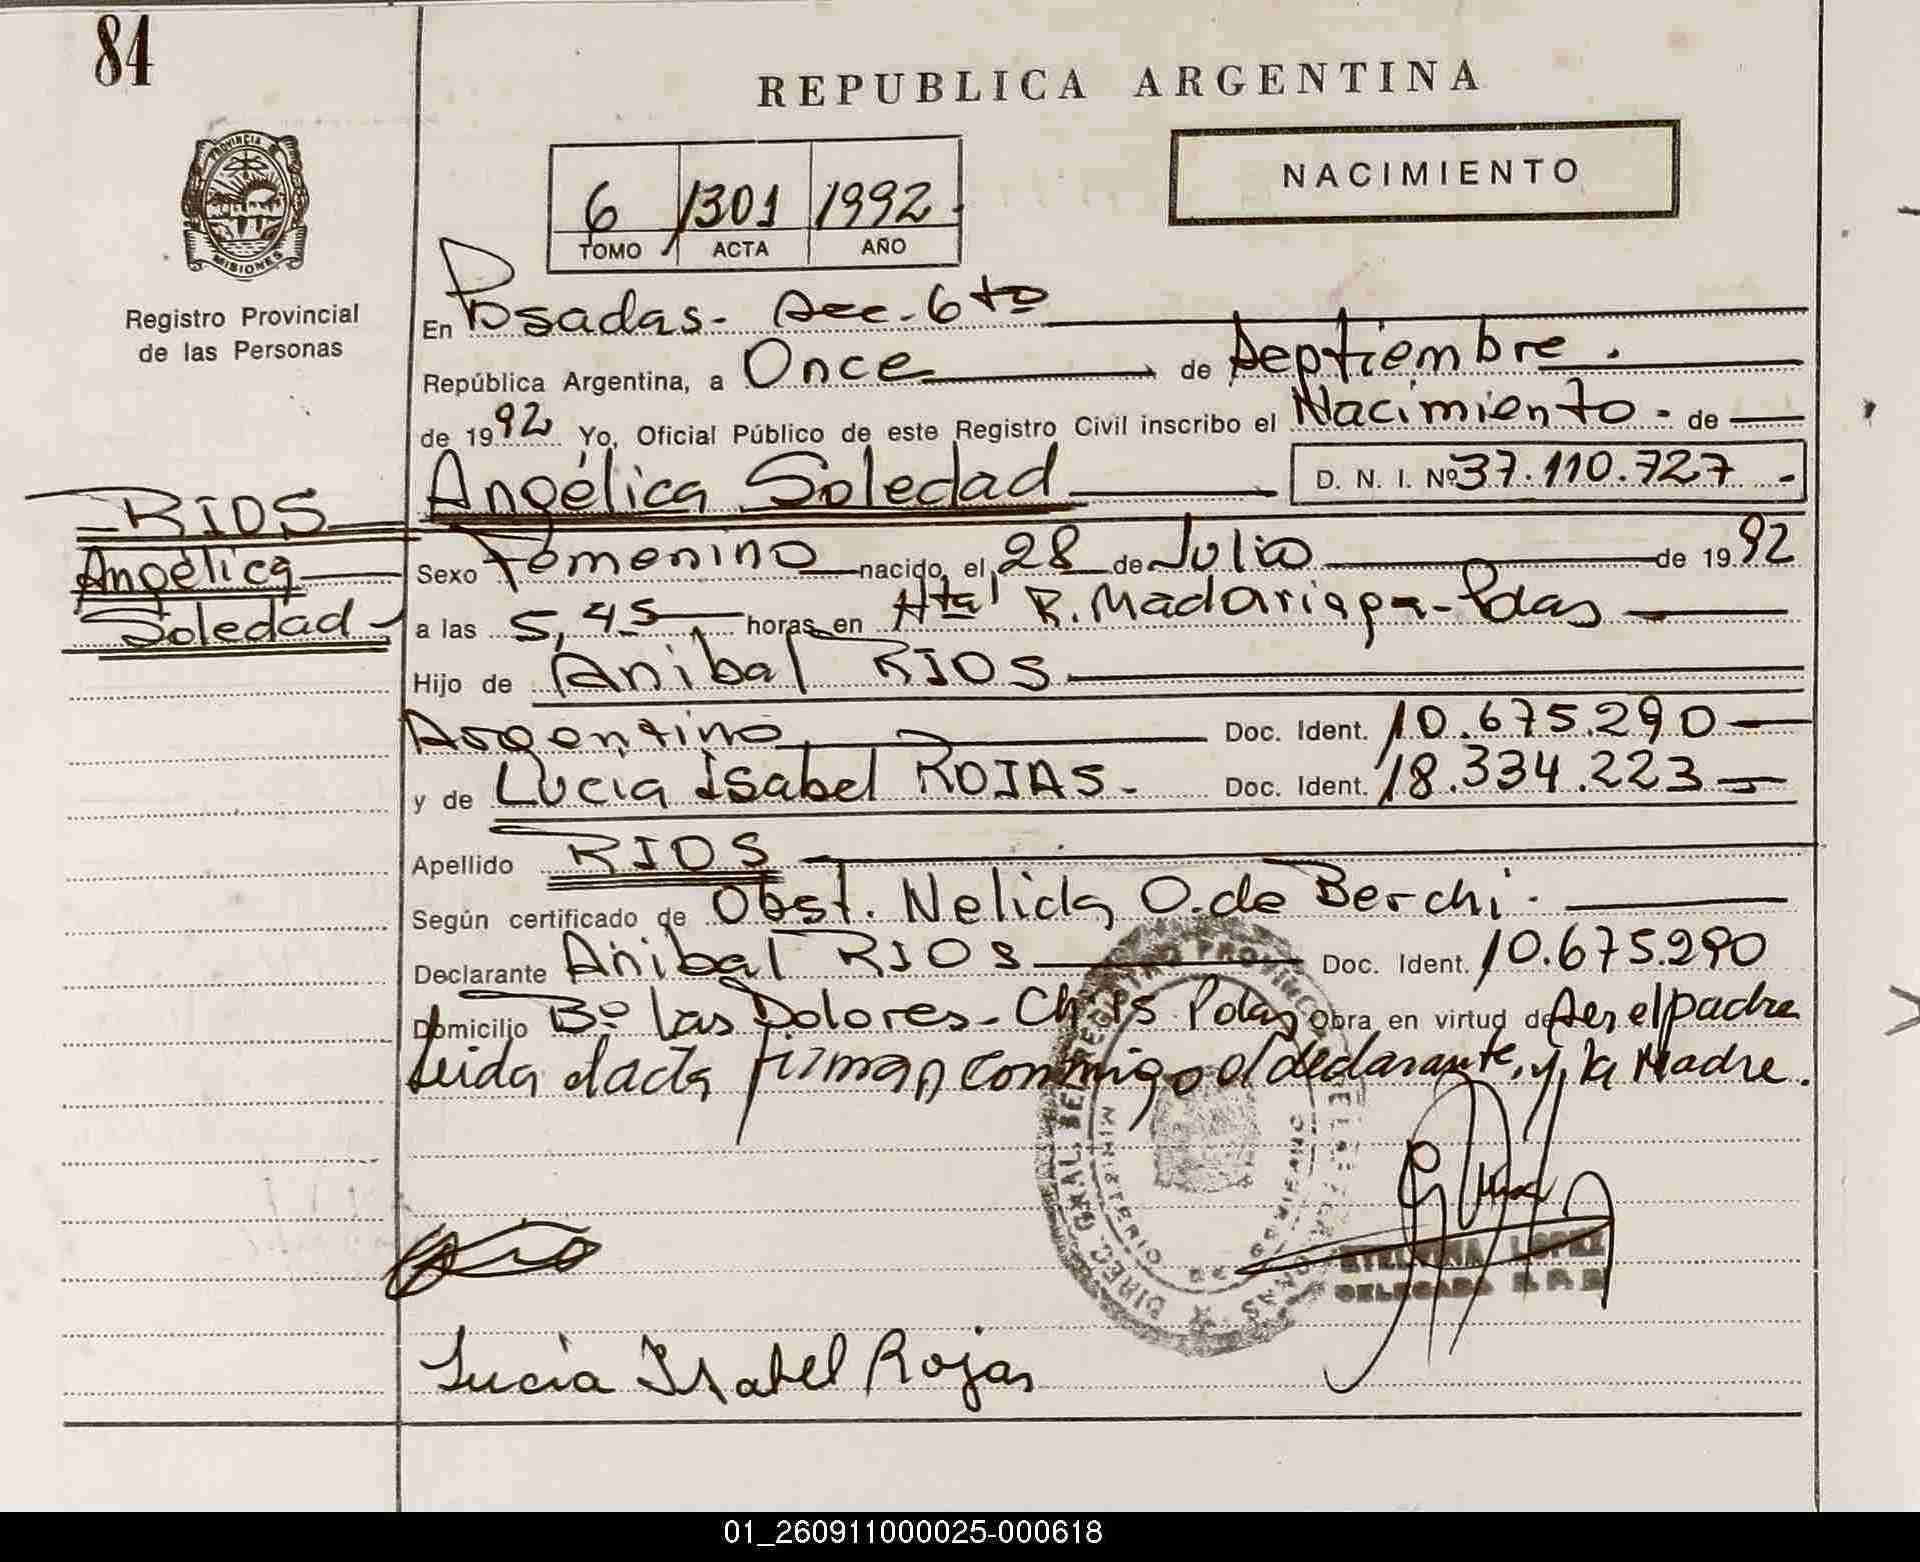 84
REPUBLICA ARGENTINA
NACIMIENTO
6 1301 1992
TOMO ACTA AÑO
PROVINCIA DE MISIONES
Registro Provincial
de las Personas
En Posadas - Sec. 6to
República Argentina, a Once de Septiembre.
de 1992 Yo, Oficial Público de este Registro Civil inscribo el Nacimiento - de
Angélica Soledad D. N. I. Nº 37.110.727 -
RIOS
Angélica
Soledad -
Sexo Femenino nacido el 28 de Julio de 1992
a las 5,45 horas en Htal R. Madariaga - Pdas
Hijo de Anibal RIOS
Argentino Doc. Ident. 10.675.290
y de Lucia Isabel ROJAS - Doc. Ident. 18.334.223
Apellido RIOS
Según certificado de Obst. Nelida O. de Berchi -
Declarante Anibal RIOS Doc. Ident. 10.675.290
Domicilio Bº Las Dolores - Pdas obra en virtud de Ser el padre
Leida el acta firman conmigo el declarante, y la Madre.
DIREC. GRAL. DE REGISTRO PROVINCIAL DE LAS PERSONAS
MINISTERIO DE GOBIERNO
LOPEZ
DELEGADA
Lucia Isabel Rojas
01_260911000025-000618